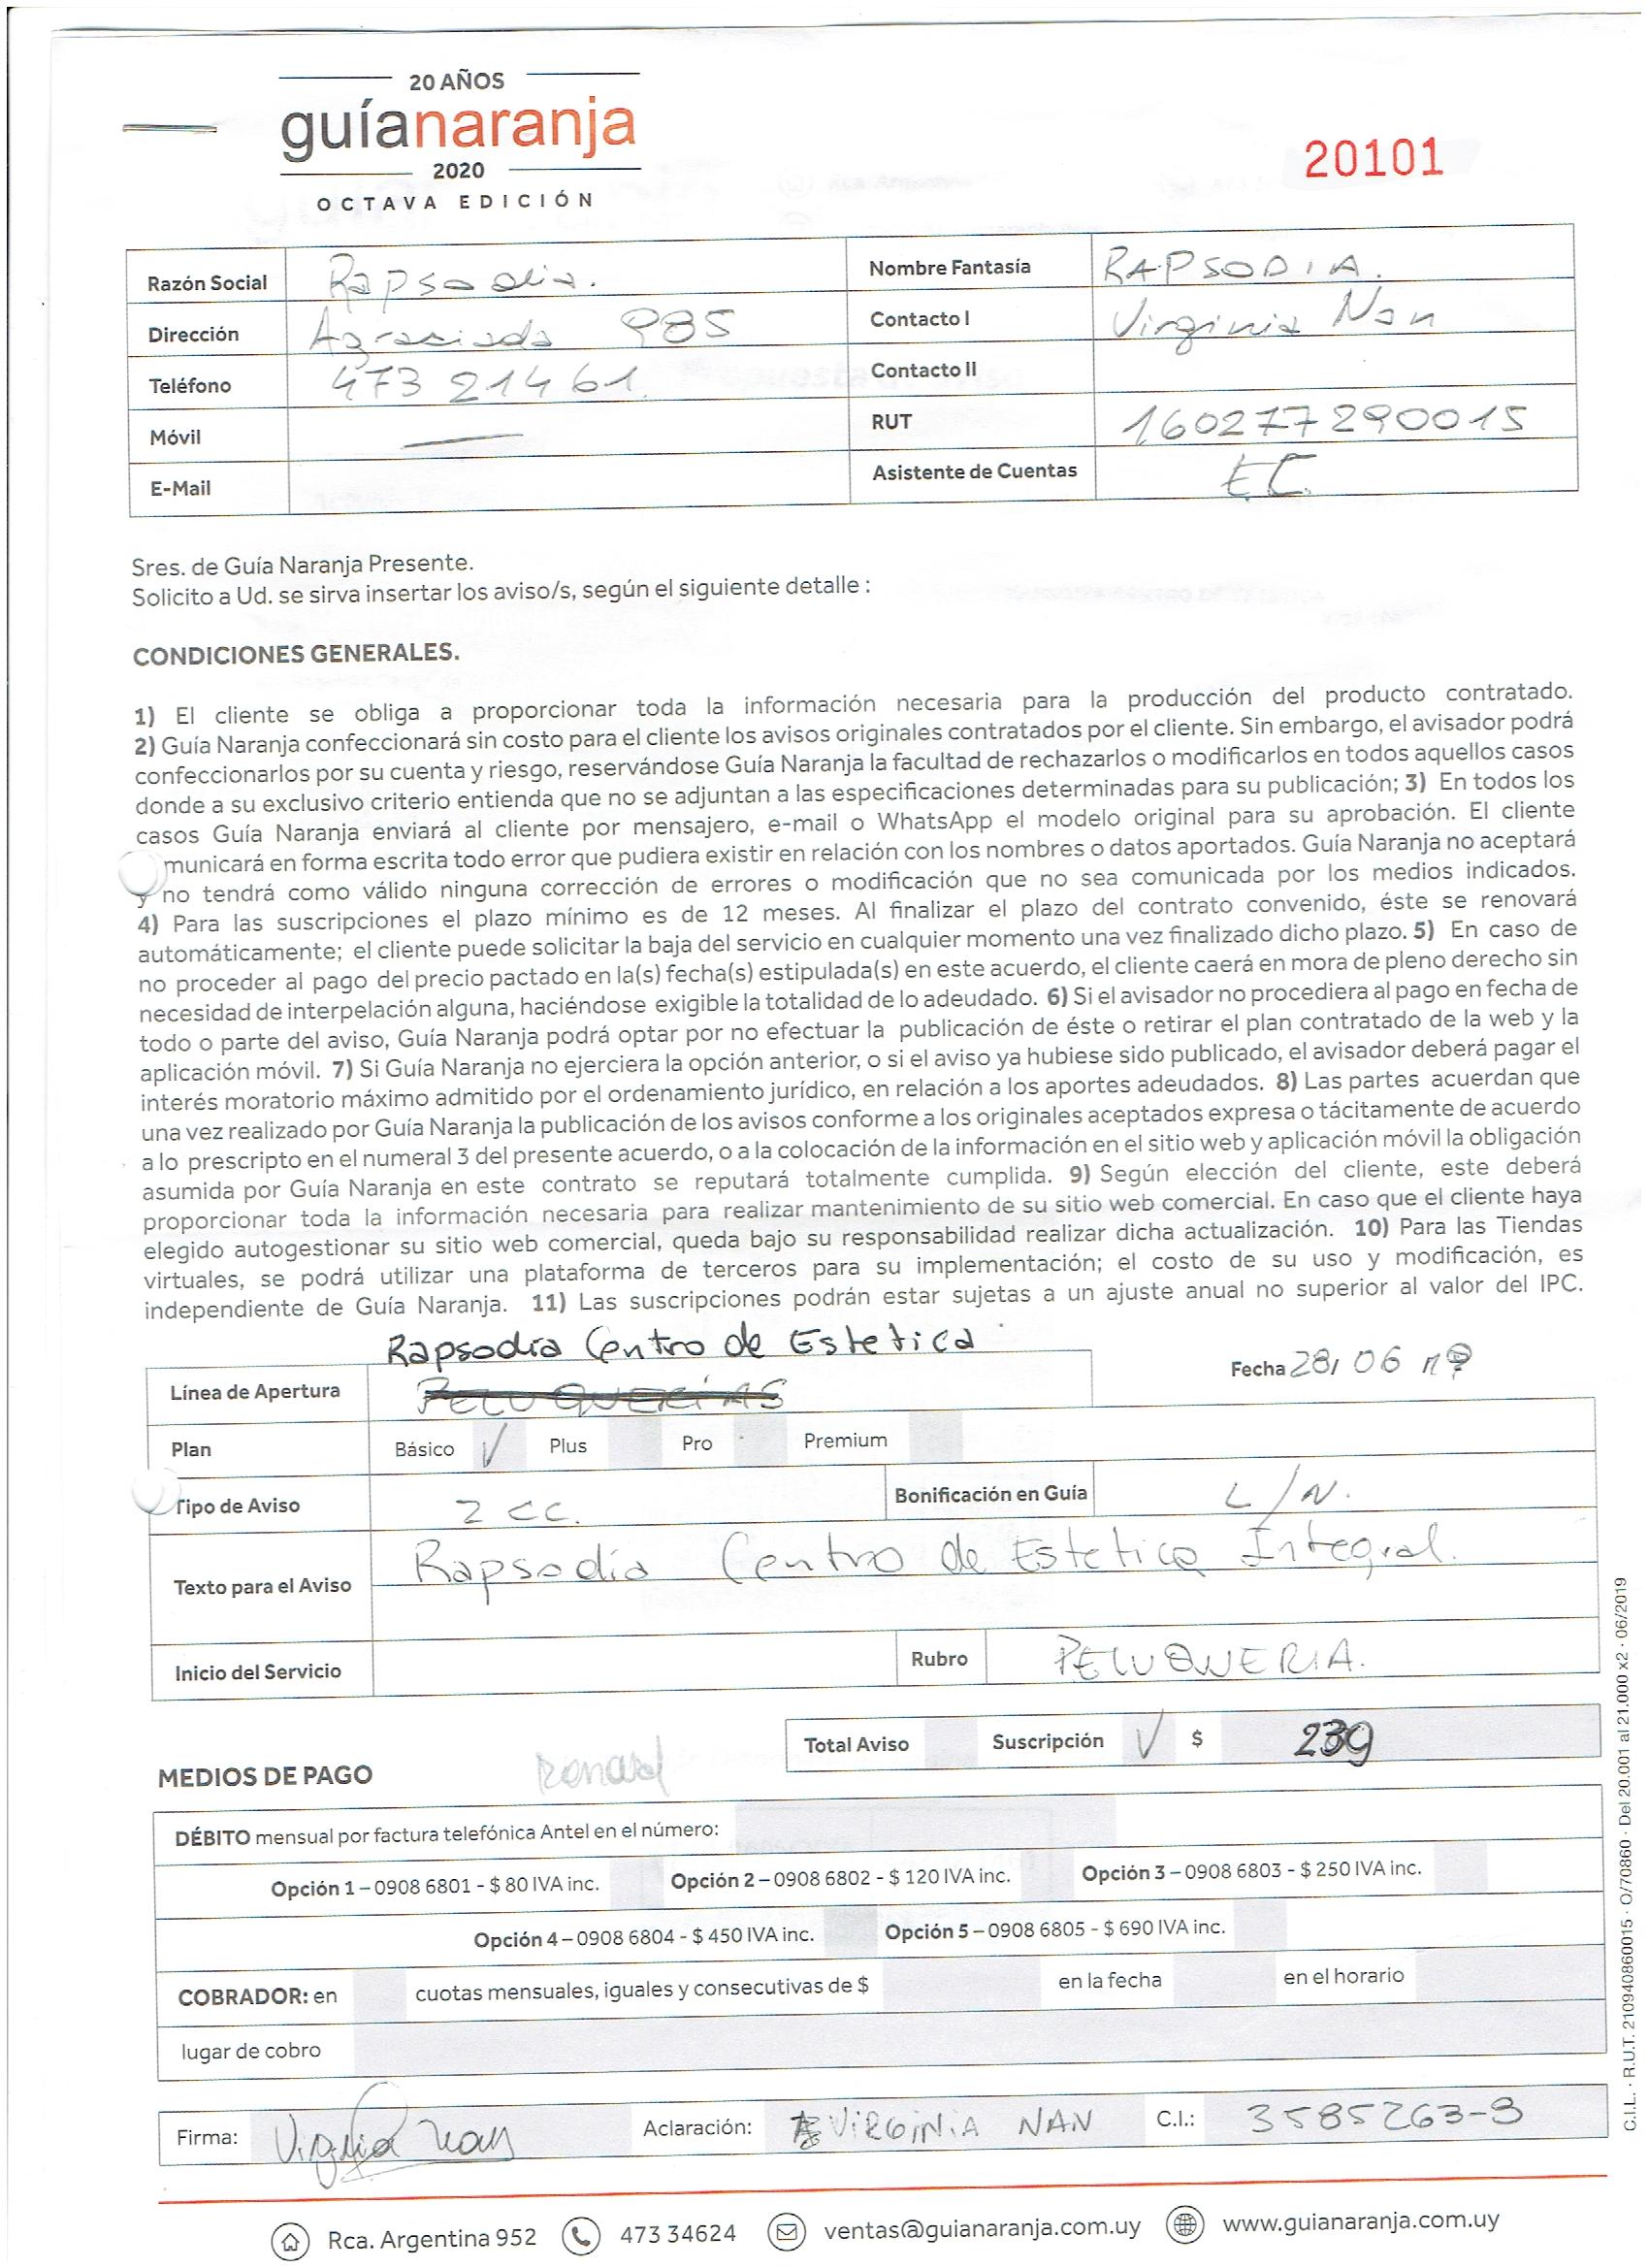 20 AÑOS
guíanaranja
2020
OCTAVA EDICIÓN
20101
Razón Social Rapsodia. Nombre Fantasía RAPSODIA.
Dirección Agraciada 985 Contacto I Virginia Nan
Teléfono 473 21461. Contacto II
Móvil — RUT 160277290015
E-Mail Asistente de Cuentas EC.
Sres. de Guía Naranja Presente.
Solicito a Ud. se sirva insertar los aviso/s, según el siguiente detalle :
CONDICIONES GENERALES.
1) El cliente se obliga a proporcionar toda la información necesaria para la producción del producto contratado.
2) Guía Naranja confeccionará sin costo para el cliente los avisos originales contratados por el cliente. Sin embargo, el avisador podrá
confeccionarlos por su cuenta y riesgo, reservándose Guía Naranja la facultad de rechazarlos o modificarlos en todos aquellos casos
donde a su exclusivo criterio entienda que no se adjuntan a las especificaciones determinadas para su publicación; 3) En todos los
casos Guía Naranja enviará al cliente por mensajero, e-mail o WhatsApp el modelo original para su aprobación. El cliente
municará en forma escrita todo error que pudiera existir en relación con los nombres o datos aportados. Guía Naranja no aceptará
y no tendrá como válido ninguna corrección de errores o modificación que no sea comunicada por los medios indicados.
4) Para las suscripciones el plazo mínimo es de 12 meses. Al finalizar el plazo del contrato convenido, éste se renovará
automáticamente; el cliente puede solicitar la baja del servicio en cualquier momento una vez finalizado dicho plazo. 5) En caso de
no proceder al pago del precio pactado en la(s) fecha(s) estipulada(s) en este acuerdo, el cliente caerá en mora de pleno derecho sin
necesidad de interpelación alguna, haciéndose exigible la totalidad de lo adeudado. 6) Si el avisador no procediera al pago en fecha de
todo o parte del aviso, Guía Naranja podrá optar por no efectuar la publicación de éste o retirar el plan contratado de la web y la
aplicación móvil. 7) Si Guía Naranja no ejerciera la opción anterior, o si el aviso ya hubiese sido publicado, el avisador deberá pagar el
interés moratorio máximo admitido por el ordenamiento jurídico, en relación a los aportes adeudados. 8) Las partes acuerdan que
una vez realizado por Guía Naranja la publicación de los avisos conforme a los originales aceptados expresa o tácitamente de acuerdo
a lo prescripto en el numeral 3 del presente acuerdo, o a la colocación de la información en el sitio web y aplicación móvil la obligación
asumida por Guía Naranja en este contrato se reputará totalmente cumplida. 9) Según elección del cliente, este deberá
proporcionar toda la información necesaria para realizar mantenimiento de su sitio web comercial. En caso que el cliente haya
elegido autogestionar su sitio web comercial, queda bajo su responsabilidad realizar dicha actualización. 10) Para las Tiendas
virtuales, se podrá utilizar una plataforma de terceros para su implementación; el costo de su uso y modificación, es
independiente de Guía Naranja. 11) Las suscripciones podrán estar sujetas a un ajuste anual no superior al valor del IPC.
Rapsodia Centro de Estetica
Línea de Apertura PELUQUERÍAS Fecha 28/ 06 19
Plan Básico √ Plus Pro Premium
Tipo de Aviso 2 CC. Bonificación en Guía L/N.
Texto para el Aviso Rapsodia Centro de Estetica Integral.
Inicio del Servicio Rubro PELUQUERIA.
Total Aviso Suscripción √ $ 239
MEDIOS DE PAGO
DÉBITO mensual por factura telefónica Antel en el número:
Opción 1 – 0908 6801 - $ 80 IVA inc. Opción 2 – 0908 6802 - $ 120 IVA inc. Opción 3 – 0908 6803 - $ 250 IVA inc.
Opción 4 – 0908 6804 - $ 450 IVA inc. Opción 5 – 0908 6805 - $ 690 IVA inc.
COBRADOR: en cuotas mensuales, iguales y consecutivas de $ en la fecha en el horario
lugar de cobro
Firma: Virginia Nan Aclaración: VIRGINIA NAN C.I.: 3585263-9
Rca. Argentina 952 473 34624 ventas@guianaranja.com.uy www.guianaranja.com.uy
C.I.L. · R.U.T. 210940860015 · O/70860 · Del 20.001 al 21.000 x2 · 06/2019